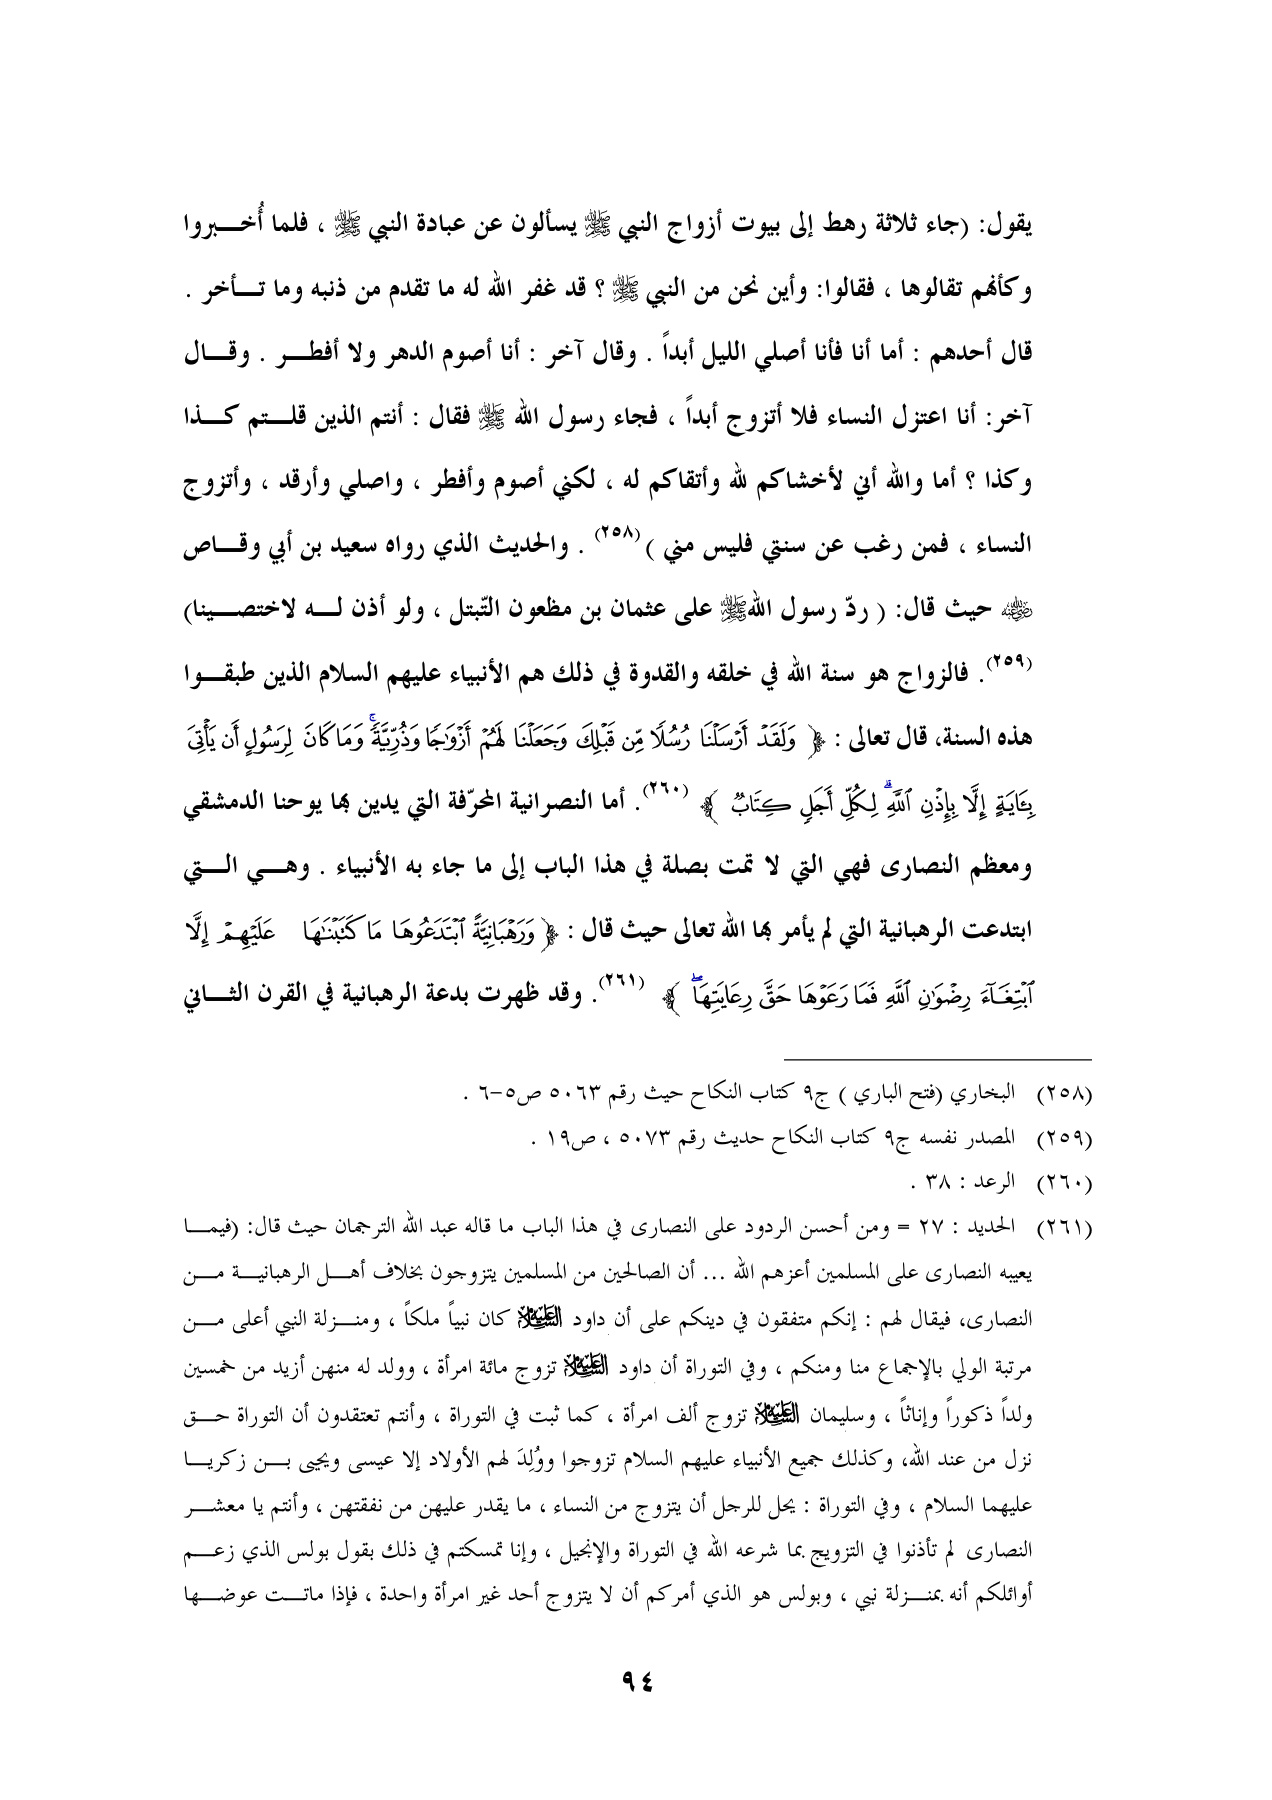 يقول: (جاء ثلاثة رهط إلى بيوت أزواج النبي ﷺ يسألون عن عبادة النبي ﷺ ، فلما أُخـــبروا
وكأنهم تقالوها ، فقالوا: وأين نحن من النبي ﷺ ؟ قد غفر الله له ما تقدم من ذنبه وما تـــأخر .
قال أحدهم : أما أنا فأنا أصلي الليل أبداً . وقال آخر : أنا أصوم الدهر ولا أفطـــر . وقـــال
آخر: أنا اعتزل النساء فلا أتزوج أبداً ، فجاء رسول الله ﷺ فقال : أنتم الذين قلـــتم كـــذا
وكذا ؟ أما والله أني لأخشاكم لله وأتقاكم له ، لكني أصوم وأفطر ، واصلي وأرقد ، وأتزوج
النساء ، فمن رغب عن سنتي فليس مني )(٢٥٨) . والحديث الذي رواه سعيد بن أبي وقـــاص
رضي الله عنه حيث قال: ( ردّ رسول اللهﷺ على عثمان بن مظعون التّبتل ، ولو أذن لـــه لاختصـــينا)
(٢٥٩). فالزواج هو سنة الله في خلقه والقدوة في ذلك هم الأنبياء عليهم السلام الذين طبقـــوا
هذه السنة، قال تعالى : ﴿ وَلَقَدْ أَرْسَلْنَا رُسُلًا مِّن قَبْلِكَ وَجَعَلْنَا لَهُمْ أَزْوَٰجًا وَذُرِّيَّةً ۚ وَمَا كَانَ لِرَسُولٍ أَن يَأْتِىَ
بِـَٔايَةٍ إِلَّا بِإِذْنِ ٱللَّهِ ۗ لِكُلِّ أَجَلٍ كِتَابٌ ﴾ (٢٦٠). أما النصرانية المحرّفة التي يدين بها يوحنا الدمشقي
ومعظم النصارى فهي التي لا تمت بصلة في هذا الباب إلى ما جاء به الأنبياء . وهـــي الـــتي
ابتدعت الرهبانية التي لم يأمر بها الله تعالى حيث قال : ﴿ وَرَهْبَانِيَّةً ٱبْتَدَعُوهَا مَا كَتَبْنَـٰهَا عَلَيْهِمْ إِلَّا
ٱبْتِغَآءَ رِضْوَٰنِ ٱللَّهِ فَمَا رَعَوْهَا حَقَّ رِعَايَتِهَا ۖ ﴾ (٢٦١). وقد ظهرت بدعة الرهبانية في القرن الثـــاني
(٢٥٨) البخاري (فتح الباري ) ج٩ كتاب النكاح حيث رقم ٥٠٦٣ ص٥-٦ .
(٢٥٩) المصدر نفسه ج٩ كتاب النكاح حديث رقم ٥٠٧٣ ، ص١٩ .
(٢٦٠) الرعد : ٣٨ .
(٢٦١) الحديد : ٢٧ = ومن أحسن الردود على النصارى في هذا الباب ما قاله عبد الله الترجمان حيث قال: (فيمـــا
يعيبه النصارى على المسلمين أعزهم الله ... أن الصالحين من المسلمين يتزوجون بخلاف أهـــل الرهبانيـــة مـــن
النصارى، فيقال لهم : إنكم متفقون في دينكم على أن داود عليه السلام كان نبياً ملكاً ، ومنـــزلة النبي أعلى مـــن
مرتبة الولي بالإجماع منا ومنكم ، وفي التوراة أن داود عليه السلام تزوج مائة امرأة ، وولد له منهن أزيد من خمسين
ولداً ذكوراً وإناثاً ، وسليمان عليه السلام تزوج ألف امرأة ، كما ثبت في التوراة ، وأنتم تعتقدون أن التوراة حـــق
نزل من عند الله، وكذلك جميع الأنبياء عليهم السلام تزوجوا ووُلِدَ لهم الأولاد إلا عيسى ويحيى بـــن زكريـــا
عليهما السلام ، وفي التوراة : يحل للرجل أن يتزوج من النساء ، ما يقدر عليهن من نفقتهن ، وأنتم يا معشـــر
النصارى لم تأذنوا في التزويج بما شرعه الله في التوراة والإنجيل ، وإنا تمسكتم في ذلك بقول بولس الذي زعـــم
أوائلكم أنه بمنـــزلة نبي ، وبولس هو الذي أمركم أن لا يتزوج أحد غير امرأة واحدة ، فإذا ماتـــت عوضـــها
٩٤